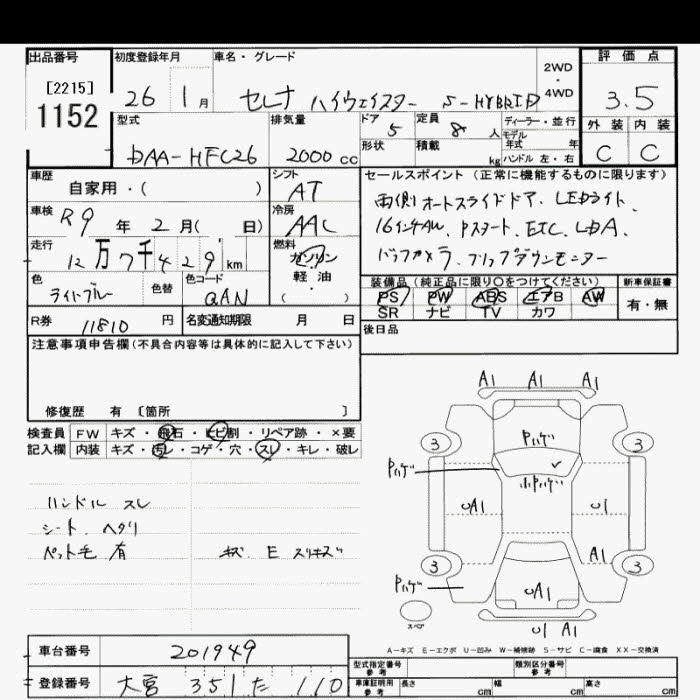 出品番号 初度登録年月 車名・グレード 2WD・4WD 評価点
[2215]
1152
26 1月 セレナ ハイウェイスター S-HYBRID 3.5
型式 排気量 ドア 5 定員 8人 ディーラー・並行 外装 内装
モデル年式 年
形状 積載 kg ハンドル 左・右
DAA-HFC26 2000cc C C
車歴 シフト セールスポイント(正常に機能するものに限ります)
自家用・( ) AT
両側オートスライドドア. LEDライト
車検 R9年 2月( 日) 冷房 AAC
16インチAW. Pスタート. ETC. LDA.
走行 12万7千429km 燃料 ガソリン
バックカメラ. フリップダウンモニター
軽・油
( )
色 色替 色コード
ライトブルー QAN
装備品(純正品に限り○をつけてください) 新車保証書
PS PW ABS エアB AW 有・無
SR ナビ TV カワ
R券 11810円 名変通知期限 月 日
後日品
注意事項申告欄(不具合内容等は具体的に記入して下さい)
修復歴 有 [箇所 ]
検査員 FW キズ・飛石・ヒビ割・リペア跡・×要
記入欄 内装 キズ・汚レ・コゲ・穴・スレ・キレ・破レ
ハンドル スレ
シート. ヘタリ
ペット毛 有 キズ E スリキズ
A1 A1 A1
Pハゲ
3 3
Pハゲ
小Pハゲ
UA1 U1
A1
3 3
Pハゲ
UA1
スペア
U1 A1
A-キズ E-エクボ U-凹み W-補修跡 S-サビ C-腐食 XX-交換済
車台番号 201949
型式指定番号 参考 類別区分番号 参考
登録番号 大宮 351 た 110
車庫証明用 参考 長さ cm 幅 cm 高さ cm